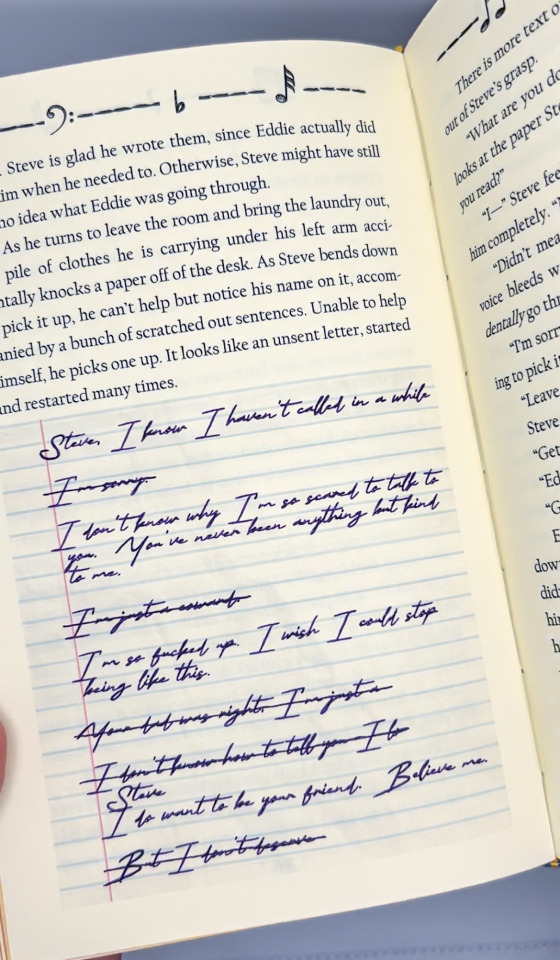 . Steve is glad he wrote them, since Eddie actually did
im when he needed to. Otherwise, Steve might have still
no idea what Eddie was going through.
As he turns to leave the room and bring the laundry out,
pile of clothes he is carrying under his left arm acci-
ntally knocks a paper off of the desk. As Steve bends down
pick it up, he can't help but notice his name on it, accom-
anied by a bunch of scratched out sentences. Unable to help
imself, he picks one up. It looks like an unsent letter, started
and restarted many times.
Steve, I know I haven't called in a while
I'm sorry.
I don't know why I'm so scared to talk to
you. You've never been anything but kind
to me.
I'm just a coward.
I'm so fucked up. I wish I could stop
being like this.
Your dad was right. I'm just a
I don't know how to tell you I lo
Steve
I do want to be your friend. Believe me.
But I don't deserve
There is more text o
out of Steve's grasp.
"What are you do
looks at the paper Ste
you read?"
"I—" Steve fee
him completely. "
"Didn't mea
voice bleeds w
dentally go th
"I'm sorr
ing to pick i
"Leave
Steve
"Get
"Ed
"G
E
dow
did
hi
h